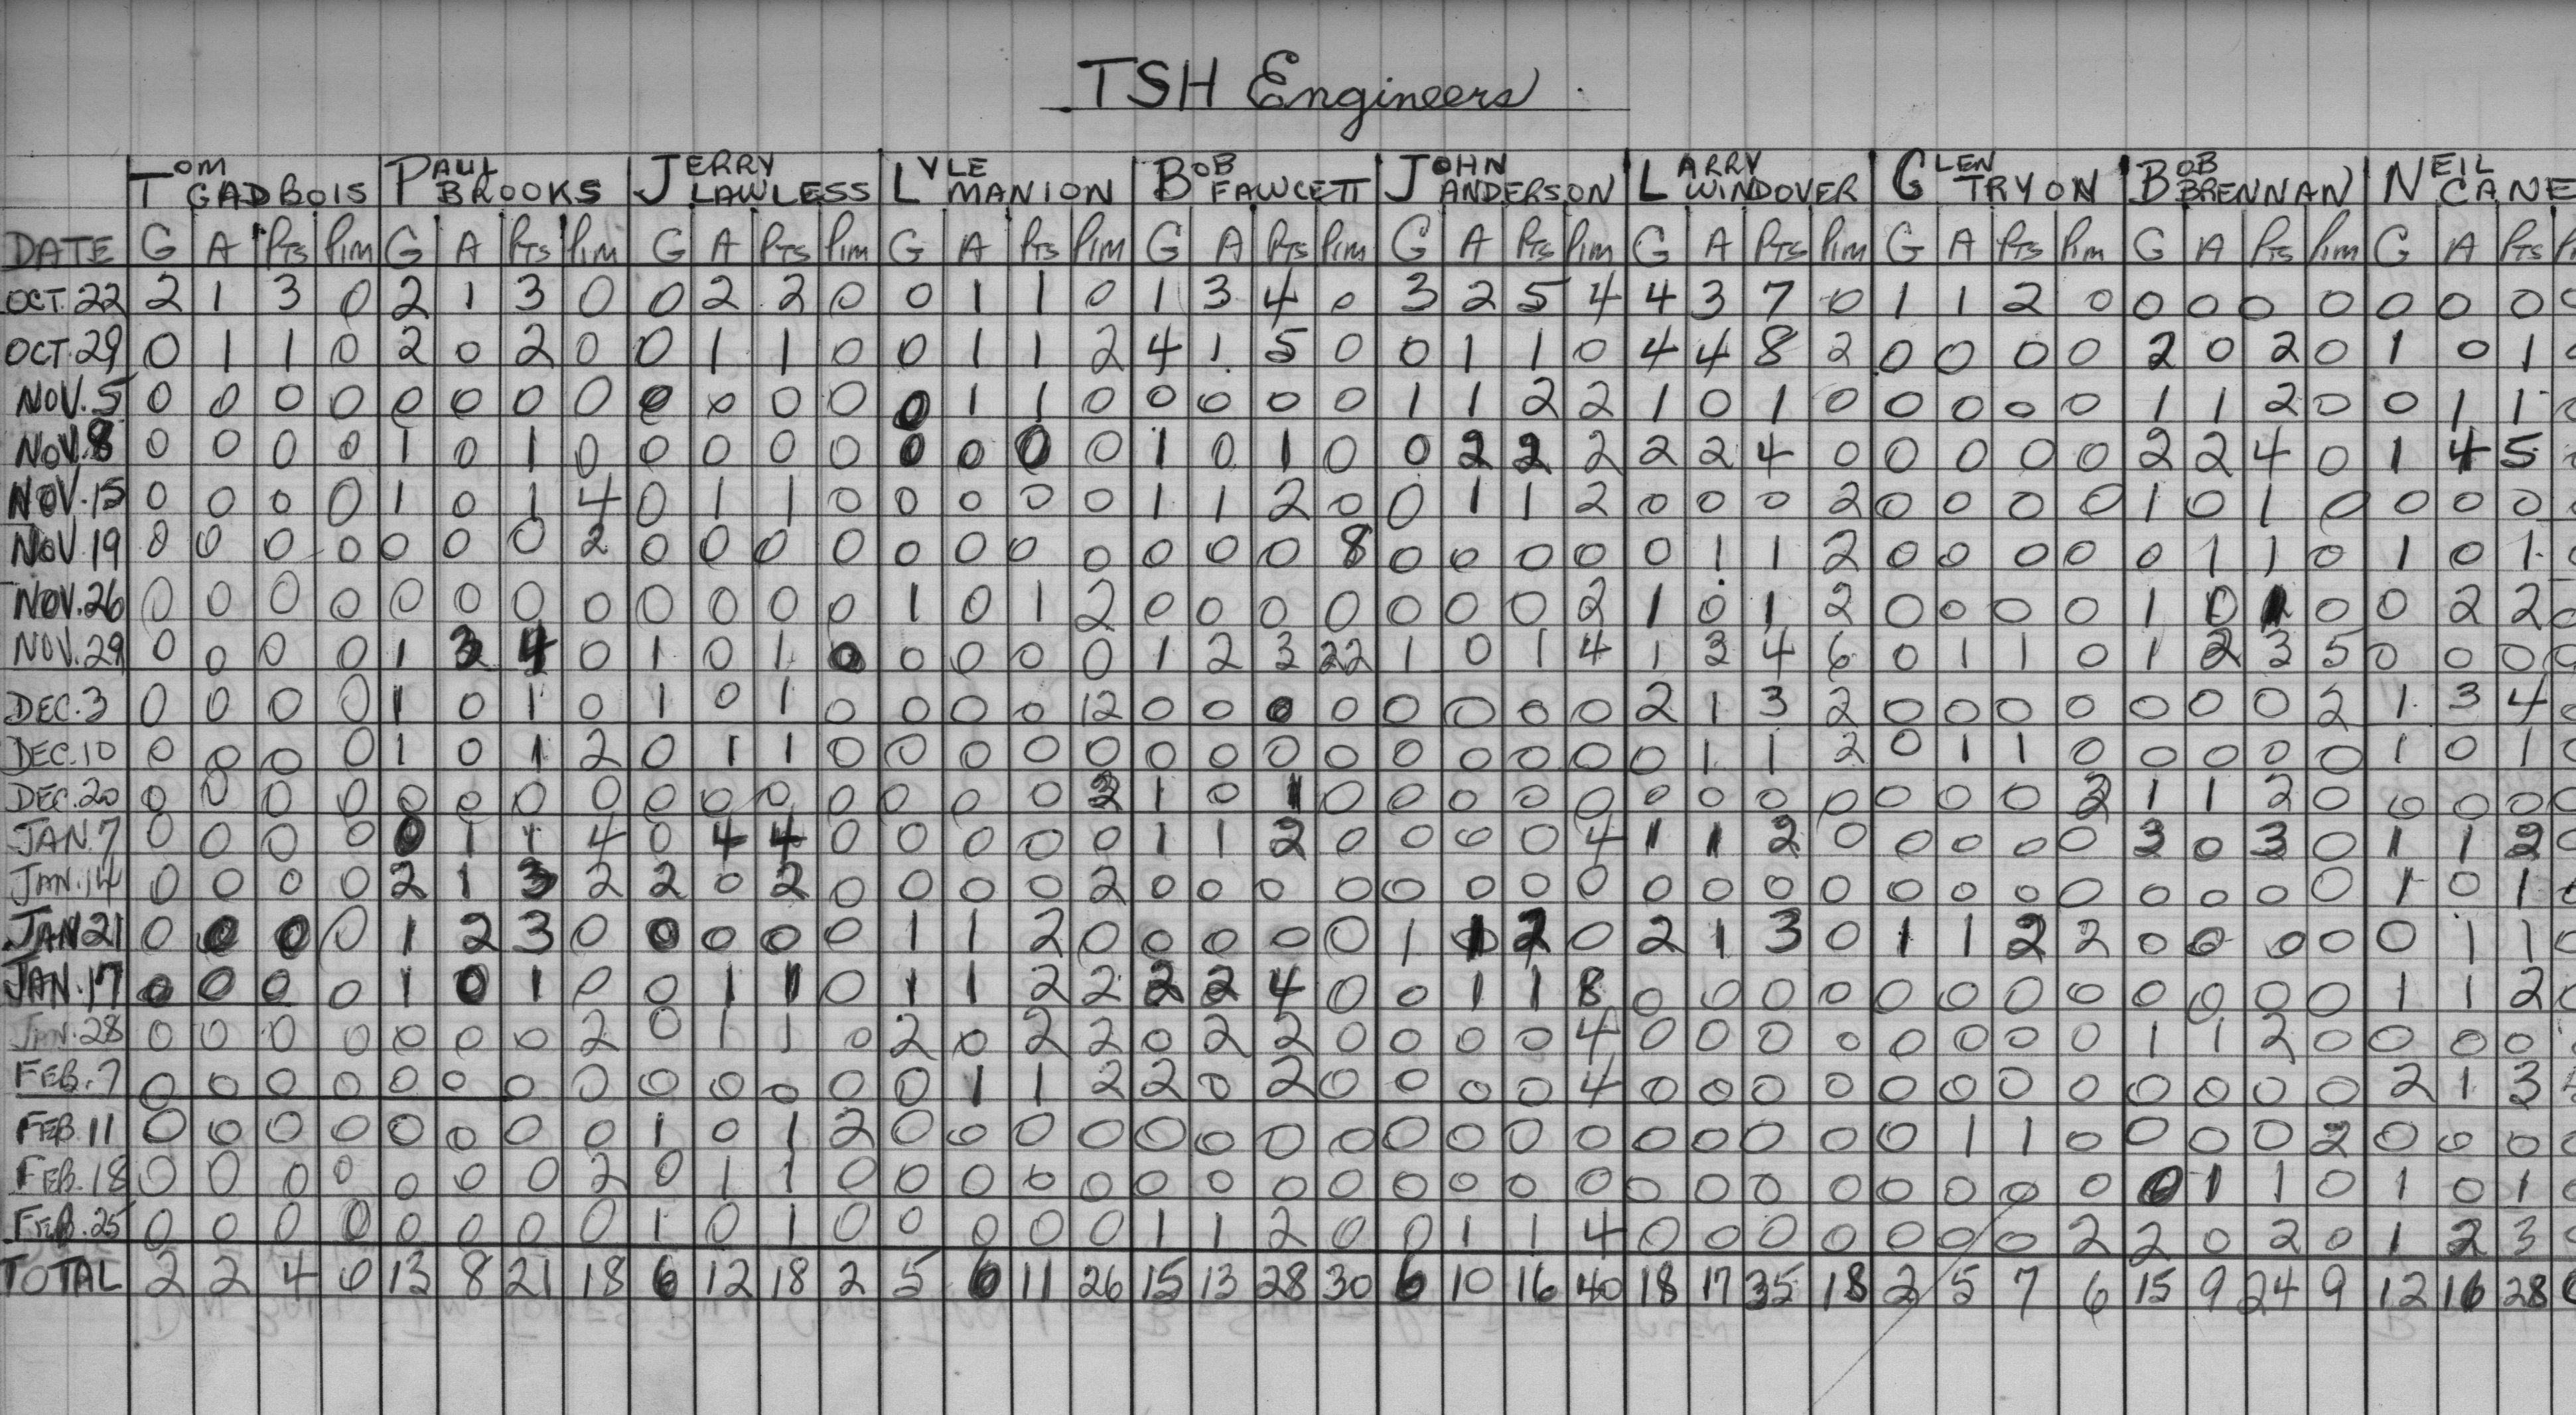 TSH Engineers
TOM GADBOIS PAUL BROOKS JERRY LAWLESS LYLE MANION BOB FAWCETT JOHN ANDERSON LARRY WINDOVER GLEN TRYON BOB BRENNAN NEIL CANE
DATE G A PTS PIM G A PTS PIM G A PTS PIM G A PTS PIM G A PTS PIM G A PTS PIM G A PTS PIM G A PTS PIM G A PTS PIM G A PTS
OCT.22 2 1 3 0 2 1 3 0 0 2 2 0 0 1 1 0 1 3 4 0 3 2 5 4 4 3 7 0 1 1 2 0 0 0 0 0 0 0 0 0
OCT.29 0 1 1 0 2 0 2 0 0 1 1 0 0 1 1 2 4 1 5 0 0 1 1 0 4 4 8 2 0 0 0 0 2 0 2 0 1 0 1
NOV.5 0 0 0 0 0 0 0 0 0 0 0 0 0 1 1 0 0 0 0 0 1 1 2 2 1 0 1 0 0 0 0 0 1 1 2 0 0 1 1
NOV.8 0 0 0 0 1 0 1 0 0 0 0 0 0 0 0 0 1 0 1 0 0 2 2 2 2 2 4 0 0 0 0 0 2 2 4 0 1 4 5
NOV.15 0 0 0 0 1 0 1 4 0 1 1 0 0 0 0 0 1 1 2 0 0 1 1 2 0 0 0 2 0 0 0 0 1 0 1 0 0 0 0
NOV 19 0 0 0 0 0 0 0 2 0 0 0 0 0 0 0 0 0 0 0 8 0 0 0 0 0 1 1 2 0 0 0 0 0 1 1 0 1 0 1
NOV.26 0 0 0 0 0 0 0 0 0 0 0 0 1 0 1 2 0 0 0 0 0 0 0 2 1 0 1 2 0 0 0 0 1 0 1 0 0 2 2
NOV.29 0 0 0 0 1 3 4 0 1 0 1 0 0 0 0 0 1 2 3 22 1 0 1 4 1 3 4 6 0 1 1 0 1 2 3 5 0 0 0
DEC.3 0 0 0 0 1 0 1 0 1 0 1 0 0 0 0 12 0 0 0 0 0 0 0 0 2 1 3 2 0 0 0 0 0 0 0 2 1 3 4
DEC.10 0 0 0 0 1 0 1 2 0 1 1 0 0 0 0 0 0 0 0 0 0 0 0 0 0 1 1 2 0 1 1 0 0 0 0 0 1 0 1
DEC.20 0 0 0 0 0 0 0 0 0 0 0 0 0 0 0 2 1 0 1 0 0 0 0 0 0 0 0 0 0 0 0 2 1 1 2 0 0 0 0
JAN.7 0 0 0 0 0 1 1 4 0 4 4 0 0 0 0 0 1 1 2 0 0 0 0 4 1 1 2 0 0 0 0 0 3 0 3 0 1 1 2
JAN.14 0 0 0 0 2 1 3 2 2 0 2 0 0 0 0 2 0 0 0 0 0 0 0 0 0 0 0 0 0 0 0 0 0 0 0 0 1 0 1
JAN 21 0 0 0 0 1 2 3 0 0 0 0 0 1 1 2 0 0 0 0 0 1 1 2 0 2 1 3 0 1 1 2 2 0 0 0 0 0 1 1
JAN.17 0 0 0 0 1 0 1 0 0 1 1 0 1 1 2 2 2 2 4 0 0 1 1 8 0 0 0 0 0 0 0 0 0 0 0 0 1 1 2
JAN.28 0 0 0 0 0 0 0 2 0 1 1 0 2 0 2 2 0 2 2 0 0 0 0 4 0 0 0 0 0 0 0 0 1 1 2 0 0 0 0
FEB.7 0 0 0 0 0 0 0 0 0 0 0 0 0 1 1 2 2 0 2 0 0 0 0 4 0 0 0 0 0 0 0 0 0 0 0 0 2 1 3
FEB.11 0 0 0 0 0 0 0 0 1 0 1 2 0 0 0 0 0 0 0 0 0 0 0 0 0 0 0 0 0 1 1 0 0 0 0 2 0 0 0
FEB.18 0 0 0 0 0 0 0 2 0 1 1 0 0 0 0 0 0 0 0 0 0 0 0 0 0 0 0 0 0 0 0 0 0 1 1 0 1 0 1
FEB.25 0 0 0 0 0 0 0 0 1 0 1 0 0 0 0 0 1 1 2 0 0 1 1 4 0 0 0 0 0 0 0 2 2 0 2 0 1 2 3
TOTAL 2 2 4 0 13 8 21 18 6 12 18 2 5 6 11 26 15 13 28 30 6 10 16 40 18 17 35 18 2 5 7 6 15 9 24 9 12 16 28